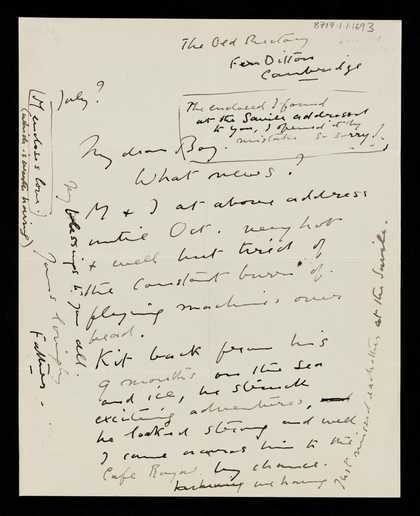 8717.1.1.1693
The Old Rectory
Fen Ditton
Cambridge
July?
The enclosed I found
at the Savile addressed
to you, I opened it by
mistake. So sorry!
My dear Boy.
What news?
M & I at above address
until Oct. very hot
& well but tired of
the constant burr of
flying machines over
head.
Kit back from his
9 months on the sea
and ice, he struck
exciting adventures,
he looked strong and well
I came across him to the
Café Royal by chance.
we having
just missed each other at the Savile.
My blessings to you all.
Yours lovingly
Father
(M encloses love)
(which is worth having)